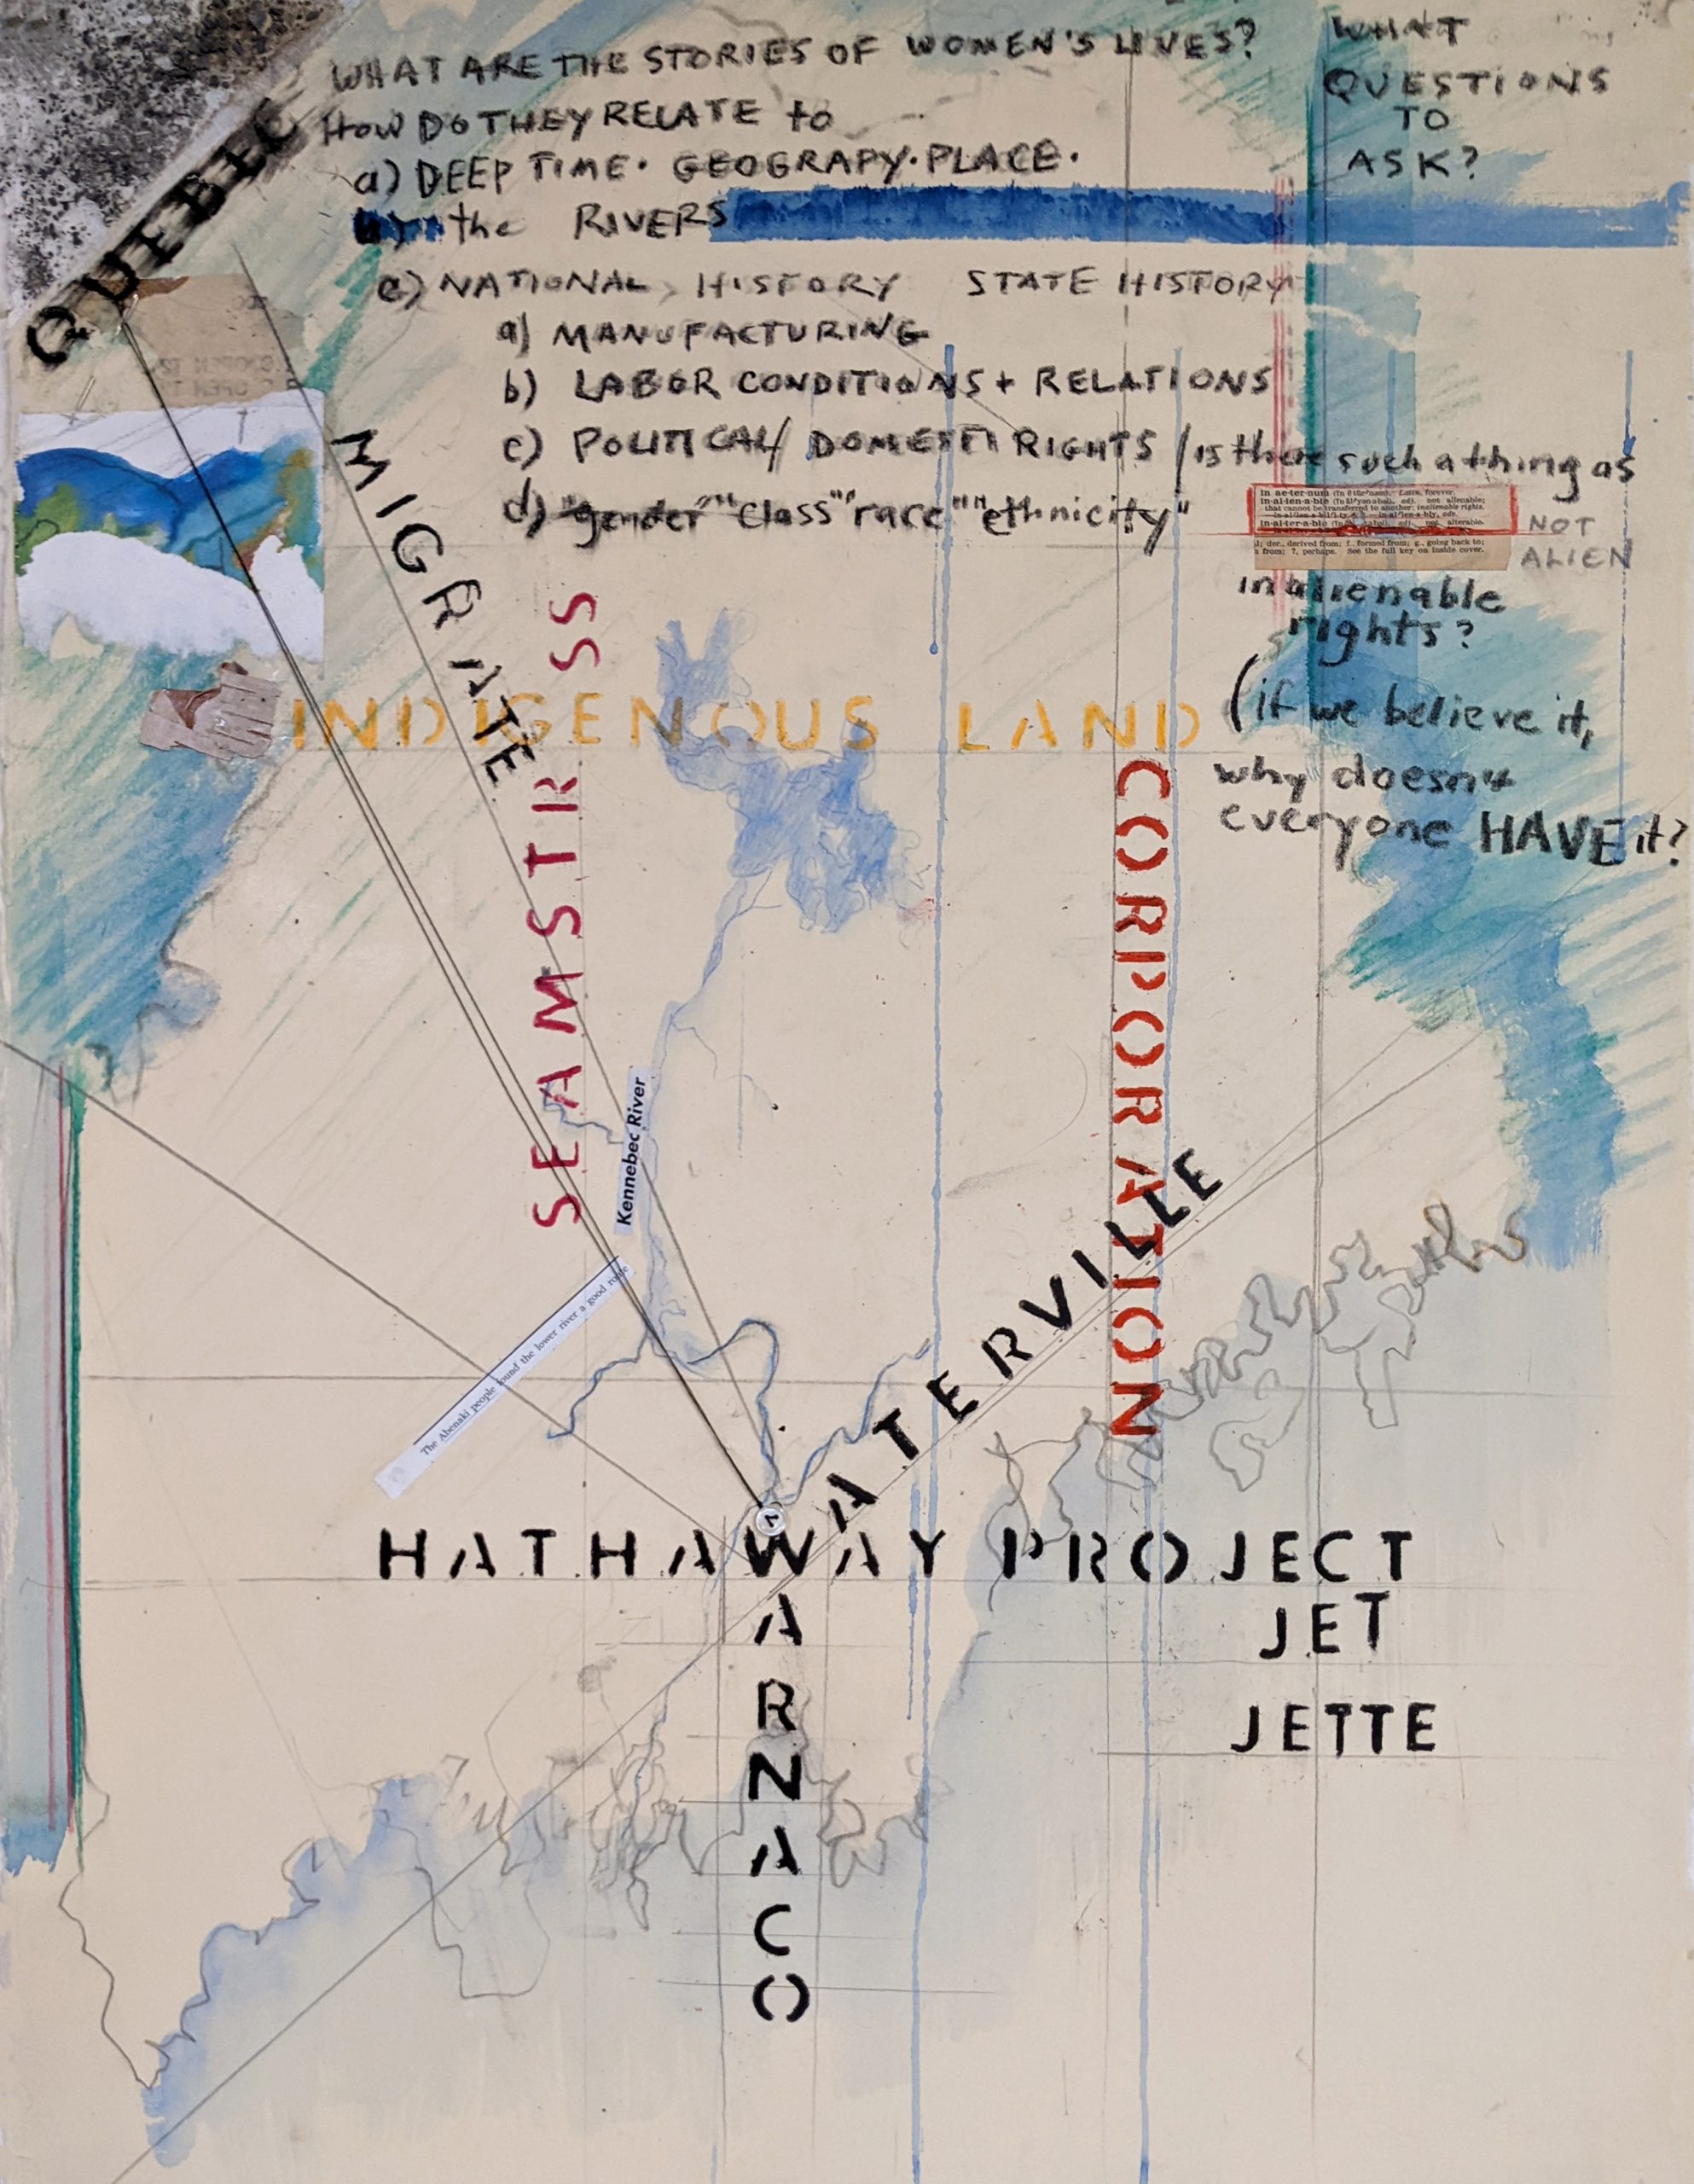 WHAT ARE THE STORIES OF WOMEN'S LIVES?
HOW DO THEY RELATE to
a) DEEP TIME. GEOGRAPY. PLACE.
b) the RIVERS
c) NATIONAL HISTORY STATE HISTORY
a) MANUFACTURING
b) LABOR CONDITIONS + RELATIONS
c) POLITICAL/ DOMESTI RIGHTS / is there such a thing as
d) "gender" "class" "race" "ethnicity"
WHAT
QUESTIONS
TO
ASK?
in ae·ter·num Latin, forever.
in·al·ien·a·ble not alienable;
that cannot be transferred to another: inalienable rights.
in·al·ter·a·ble adj. not alterable.
der., derived from; f., formed from; g., going back to;
from; ?, perhaps. See the full key on inside cover.
NOT
ALIEN
inalienable
rights?
(if we believe it,
why doesn't
everyone HAVE it?
QUEBEC
MIGRATE
SEAMSTRSS
INDIGENOUS LAND
CORPORATION
Kennebec River
The Abenaki people found the lower river a good route
WATERVILLE
HATHAWAY PROJECT
JET
JETTE
WARNACO